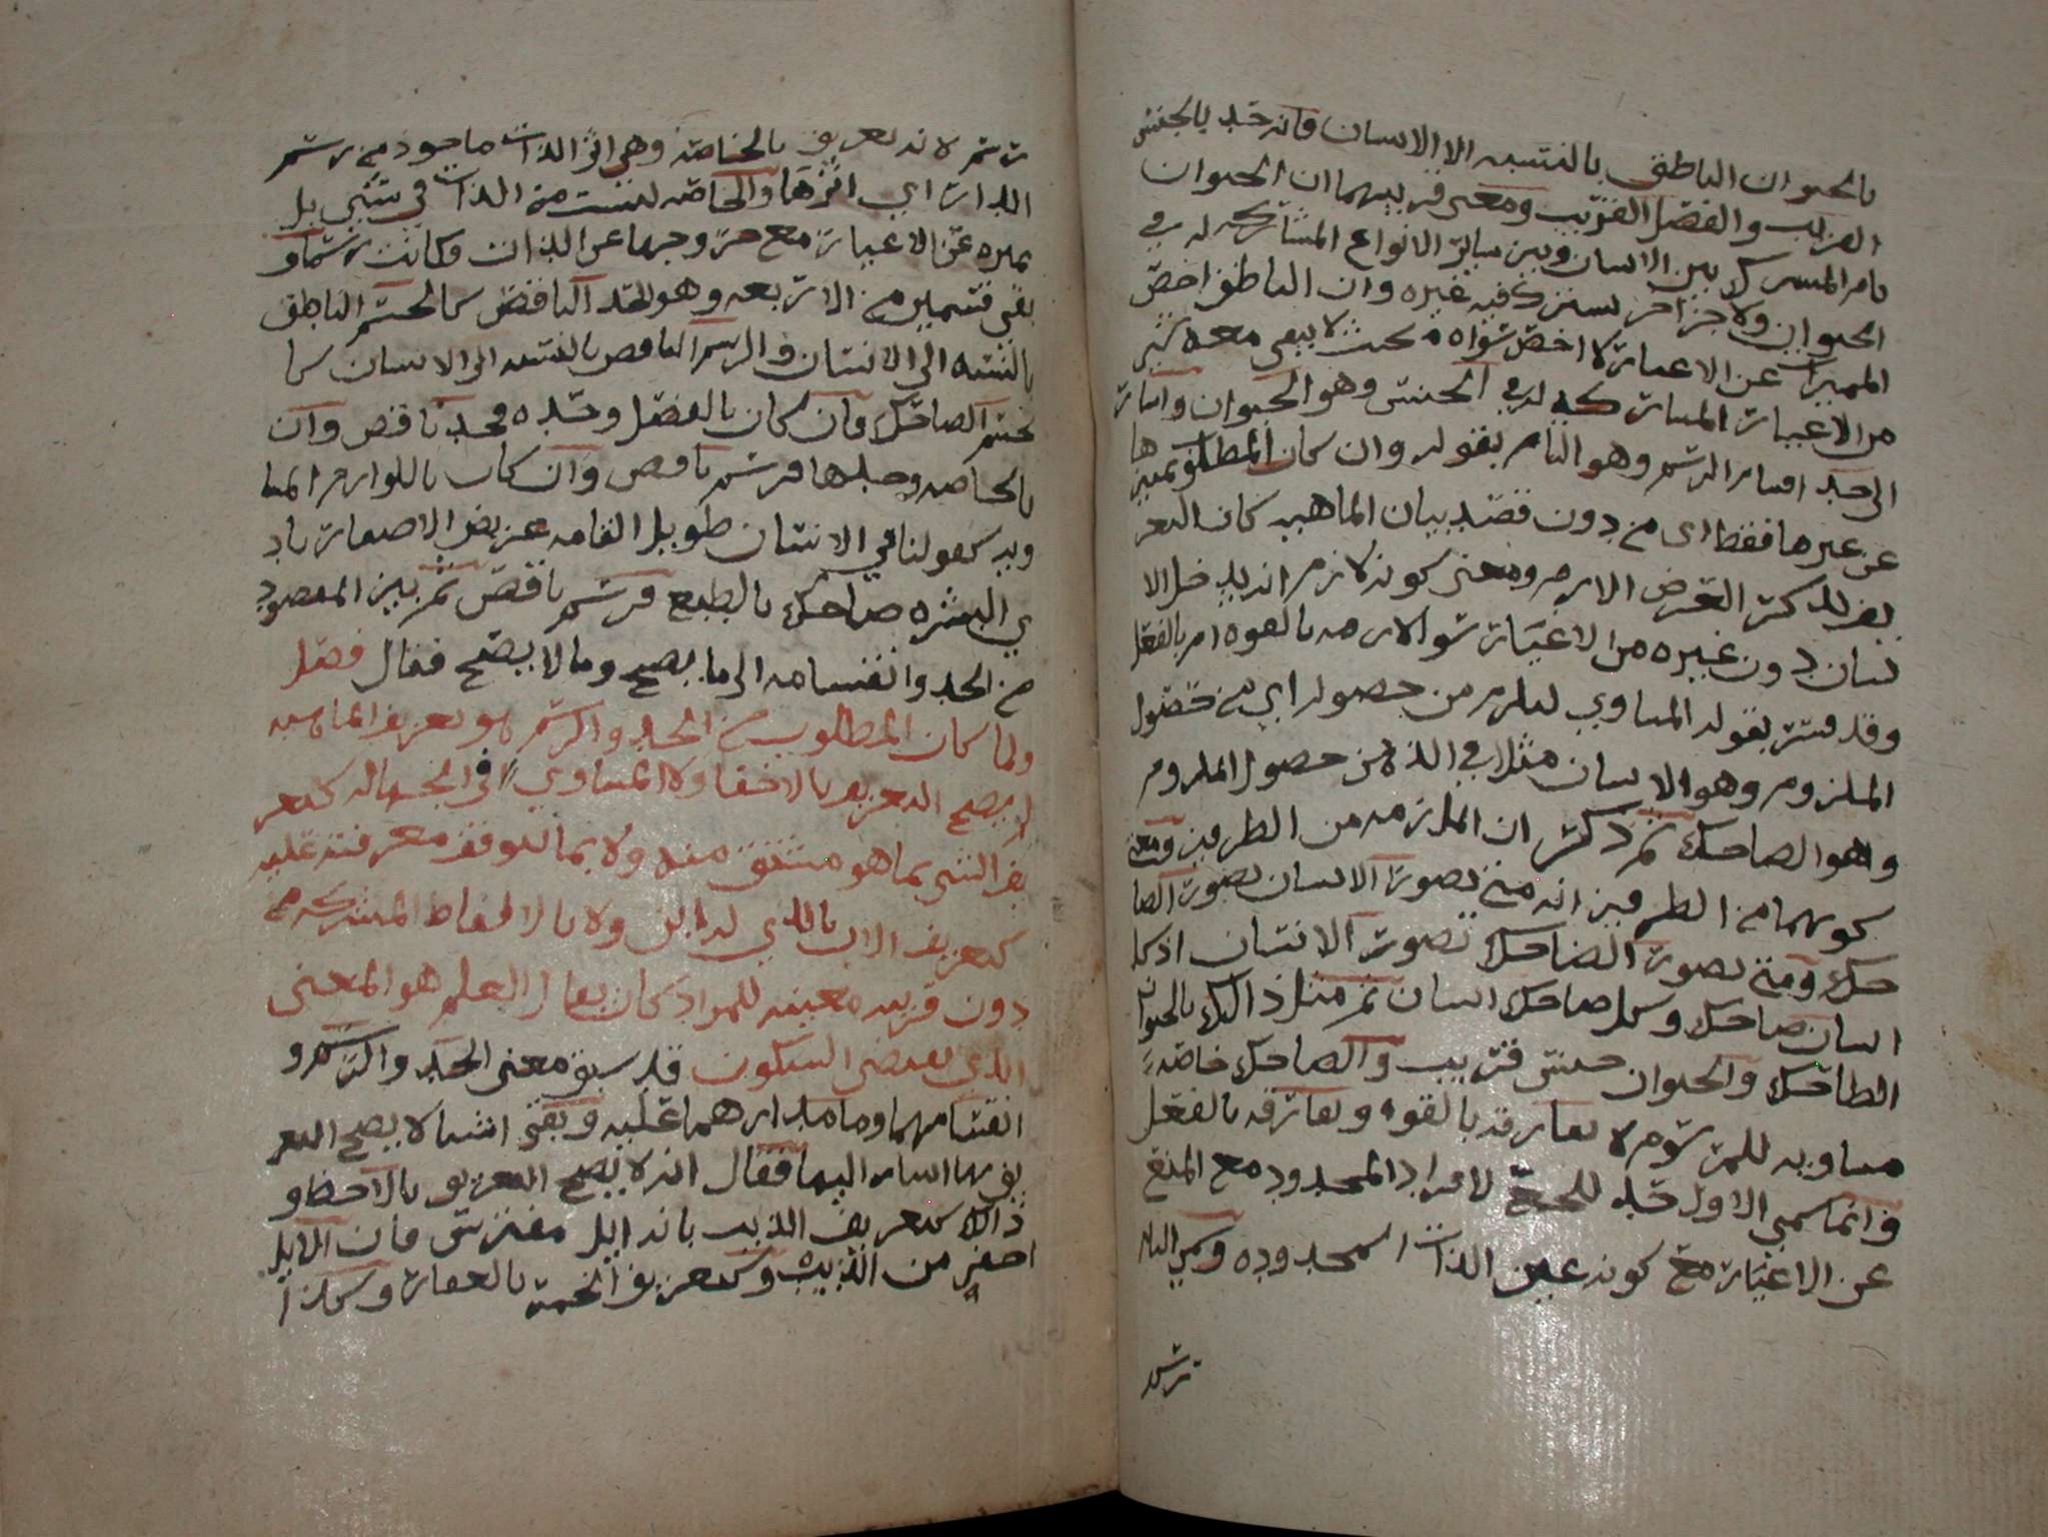 بالحيوان الناطق بالنسبه الا الانسان فانه حد بالجنس
القريب والفصل القريب ومعنى قربيهما ان الحيوان
تام المشترك بين الانسان وبين سائر الانواع المشاركه له في
الحيوان ولا جزا اخر يشترك فيه غيره وان الناطق اخص
المميزات عن الاغيار لا اخص سواه بحيث لا يبقى معه شي
من الاغيار المشاركه له في الجنس وهو الحيوان واشار
الى احد اقسام الرسم وهو التام بقوله وان كان المطلوب تمييزها
عن غيرها فقط اى من دون قصد بيان الماهيه كان التعر
يف للذكر العرض اللازم ومعنى كونه لازم انه يلازم الا
نسان دون غيره من الاغيار سوا لازمه بالقوه ام بالفعل
وقد فسر بقوله المساوي ليلزم من حصوله اي من حصول
الملزوم وهو الانسان مثلا في الذهن حصول الملزوم
وهو الضاحك ثم ذكر ان الملازمه من الطرفين ومعنى
كونهما من الطرفين انه متى تصور الانسان تصور الضا
حك ومتى تصور الضاحك تصور الانسان اذ كل
انسان ضاحك وكل ضاحك انسان ثم مثل ذالك بالحيوان
الضاحك والحيوان جنس قريب والضاحك خاصه
مساويه للمرسوم لا تفارقه بالقوه وتفارقه بالفعل
وانما سمي الاول حد للجمع لافراد المحدود مع المنع
عن الاغيار مع كونه عين الذات المحدوده وسمي الثا
رسم
رسم لانه تعريف بالخاصه وهي اثر الذات ماخوذ من رسم
الدار اي اثرها والخاصه ليست من الذات في شي بل
تميزه عن الاغيار مع خروجها عن الذات وكانت رسما و
بقي قسمين من الاربعه وهو الحد الناقص كالجسم الناطق
بالنسبه الى الانسان والرسم الناقص بالنسبه الى الانسان كا
لجسم الضاحك فان كان بالفصل وحده فحد ناقص وان
بالخاصه وحدها فرسم ناقص وان كان باللوازم
كقولنا في الانسان طويل القامه عريض الاضفار باد
ي البشره ضاحك بالطبع فرسم ناقص ثم بين المقصود
من الحد وانقسامه الى ما يصح وما لا يصح فقال فصل
ولما كان المطلوب من الحد والرسم هو تعريف الماهيه
لم يصح التعريف بالاخفا ولا المساوي في الجهاله كتعر
يف الشي بما هو مشتق منه ولا بما تتوقف معرفته عليه
كتعريف الاب بالذي له ابن ولا بالالفاظ المشتركه من
دون قرينه معينه للمراد كان يقال العلم هو المعنى
الذي يقتضي السكون قد سبق معنى الحد والرسم و
اقسامهما وما مدارهما عليه وبقي اشيا لا يصح التعر
يف بها اشار اليها فقال انه لا يصح التعريف بالاخفا و
ذالك كتعريف الذيب بانه ابل مفترس فان الابل
اصغر من الذيب وكتعريف الخمر بالعقار وكذا